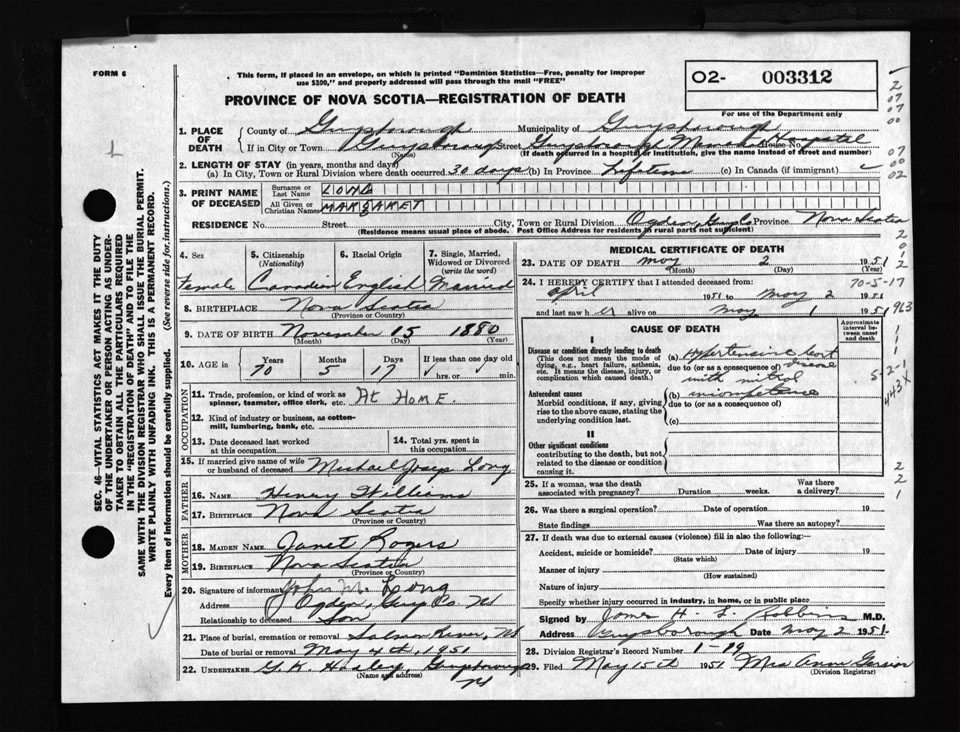 FORM 6
This form, if placed in an envelope, on which is printed "Dominion Statistics—Free, penalty for improper
use $300," and properly addressed will pass through the mail "FREE"
O2- 003312
PROVINCE OF NOVA SCOTIA—REGISTRATION OF DEATH
For use of the Department only
1. PLACE OF DEATH
County of Guysborough Municipality of Guysborough
If in City or Town Guysborough Street Guysborough Hospital House No.
(Name) (If death occurred in a hospital or institution, give the name instead of street and number)
2. LENGTH OF STAY (in years, months and days)
(a) In City, Town or Rural Division where death occurred 30 days (b) In Province Lifetime (c) In Canada (if immigrant)
3. PRINT NAME OF DECEASED
Surname or Last Name LONG
All Given or Christian Names MARGARET
RESIDENCE No. Street City, Town or Rural Division Ogden Guys Co Province Nova Scotia
(Residence means usual place of abode. Post Office Address for residents in rural parts not sufficient)
4. Sex 5. Citizenship (Nationality) 6. Racial Origin 7. Single, Married, Widowed or Divorced (write the word)
Female Canadian English Married
8. BIRTHPLACE Nova Scotia
(Province or Country)
9. DATE OF BIRTH November 15 1880
(Month) (Day) (Year)
10. AGE in Years Months Days If less than one day old
70 5 17 hrs. or min.
OCCUPATION
11. Trade, profession, or kind of work as
spinner, teamster, office clerk, etc. AT HOME.
12. Kind of industry or business, as cotton-
mill, lumbering, bank, etc.
13. Date deceased last worked at this occupation
14. Total yrs. spent in this occupation
15. If married give name of wife
or husband of deceased Michael Josep Long
FATHER
16. NAME Henry Williams
17. BIRTHPLACE Nova Scotia
(Province or Country)
MOTHER
18. MAIDEN NAME Janet Rogers
19. BIRTHPLACE Nova Scotia
(Province or Country)
20. Signature of informant John M. Long
Address Ogden, Guys Co. NS
Relationship to deceased Son
21. Place of burial, cremation or removal Salmon River, NS
Date of burial or removal May 4th, 1951
22. UNDERTAKER G.K. Healey, Guysborough
(Name and address) NS
MEDICAL CERTIFICATE OF DEATH
23. DATE OF DEATH May 2 1951
(Month) (Day) (Year)
24. I HEREBY CERTIFY that I attended deceased from: 70-5-17
April 1951 to May 2 1951
and last saw her alive on May 1 1951
CAUSE OF DEATH
Approximate interval between onset and death
I
Disease or condition directly leading to death
(This does not mean the mode of
dying, e.g., heart failure, asthenia,
etc. It means the disease, injury, or
complication which caused death.)
(a) Hypertensive heart
due to (or as a consequence of) disease
with mitral
Antecedent causes
Morbid conditions, if any, giving
rise to the above cause, stating the
underlying condition last.
(b) incompetence
due to (or as a consequence of)
(c)
II
Other significant conditions
contributing to the death, but not
related to the disease or condition
causing it.
25. If a woman, was the death
associated with pregnancy? Duration weeks. Was there a delivery?
26. Was there a surgical operation? Date of operation 19
State findings Was there an autopsy?
27. If death was due to external causes (violence) fill in also the following:—
Accident, suicide or homicide? Date of injury 19
(State which)
Manner of injury
(How sustained)
Nature of injury
Specify whether injury occurred in industry, in home, or in public place
Signed by James H. L. Robbins M.D.
Address Guysborough Date May 2 1951.
28. Division Registrar's Record Number 1-19
29. Filed May 15th 1951 Mrs Anna
(Division Registrar)
SEC. 46—VITAL STATISTICS ACT MAKES IT THE DUTY
OF THE UNDERTAKER OR PERSON ACTING AS UNDER-
TAKER TO OBTAIN ALL THE PARTICULARS REQUIRED
IN THE "REGISTRATION OF DEATH" AND TO FILE THE
SAME WITH THE DIVISION REGISTRAR WHO SHALL ISSUE THE BURIAL PERMIT.
WRITE PLAINLY WITH UNFADING INK. THIS IS A PERMANENT RECORD.
Every item of information should be carefully supplied. (See reverse side for instructions.)
2
07
07
00
07
00
02
2
0
1
2
963
1
1
1
5-2-1
443X
2
2
1